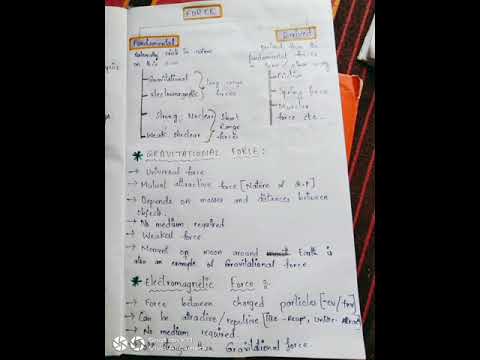 FORCE
Fundamental
Derived
Naturally exist in nature
on this
derived from the
fundamental forces
in some other way
Gravitational
Electromagnetic
long range
forces
Strong Nuclear
Weak Nuclear
Short
Range
forces
Friction
Spring force
Muscular
force etc..
* GRAVITATIONAL FORCE:
→ Universal force
→ Mutual attractive force [Nature of G.F]
→ Depends on masses and distances between
objects.
→ No medium required
→ Weakest force.
→ Moment on moon around Earth is
also an example of Gravitational force.
* Electromagnetic Force:
→ Force between charged particles [-eu/+ve]
→ Can be attractive/repulsive
→ No medium required
than Gravitational force.